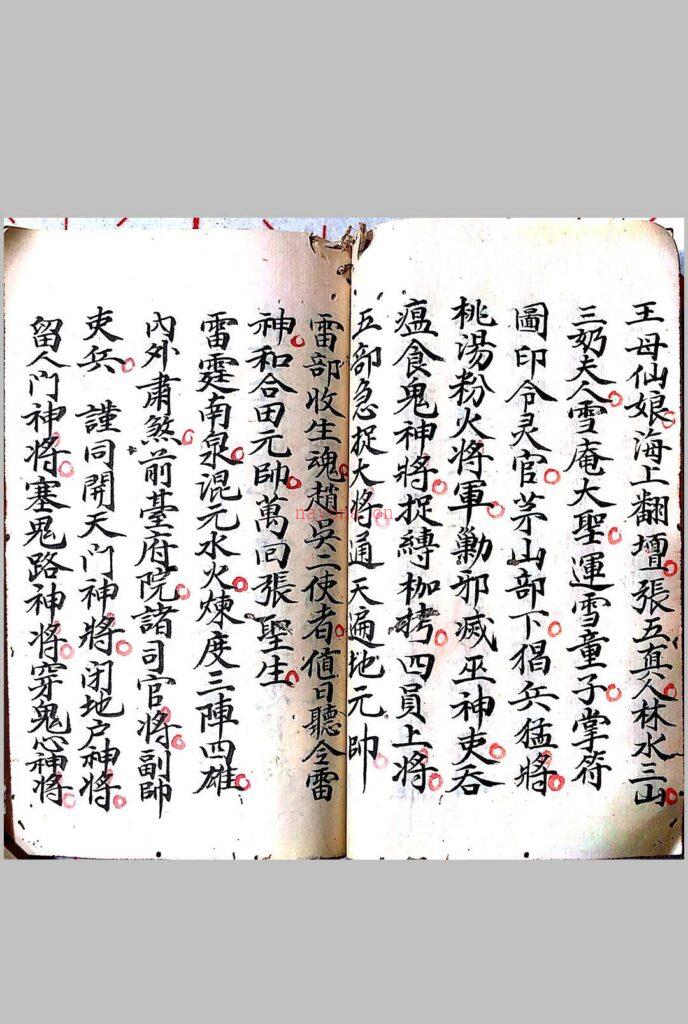 王母仙娘海上翻壇張五真人林水三山
三奶夫人雪庵大聖運雪童子掌符
圖印令灵官茅山部下猖兵猛將
桃湯粉火將軍勦邪滅巫神吏吞
瘟食鬼神將捉縛枷拷四員上將
五部急捉大將通天遍地元帥
雷部收生魂趙吳二使者值日聽令雷
神和合田元帥萬回張聖生
雷霆南泉混元水火煉度三陣四雄
內外肅煞前臺府院諸司官將副帥
吏兵 謹同開天門神將閉地户神將
留人門神將塞鬼路神將穿鬼心神將